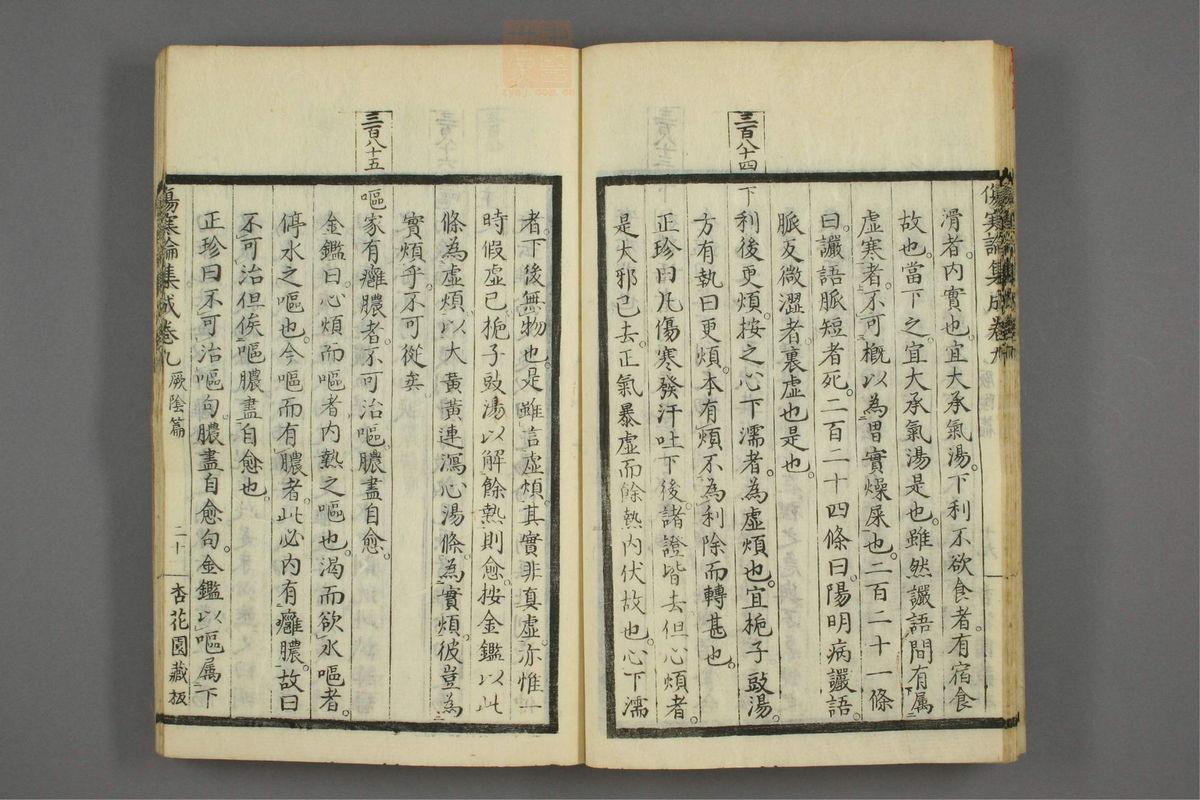 傷寒論集成卷九
滑者。内實也。宜大承氣湯。下利不欲食者。有宿食
故也。當下之。宜大承氣湯是也。雖然讝語間有屬
虛寒者。不可概以為胃實燥屎也。二百二十一條
曰。讝語脈短者死。二百二十四條曰。陽明病讝語。
脈反微澀者。裏虛也是也。
三百八十四
下利後更煩。按之心下濡者。為虛煩也。宜梔子豉湯。
方有執曰。更煩。本有煩不為利除而轉甚也。
正珍曰。凡傷寒發汗吐下後。諸證皆去。但心煩者。
是大邪已去。正氣暴虛。而餘熱内伏故也。心下濡
者。下後無物也。是雖言虛煩。其實非真虛。亦惟一
時假虛已。梔子豉湯以解餘熱則愈。按金鑑以此
條為虛煩。以大黃黃連瀉心湯條。為實煩。彼豈為
實煩乎。不可從矣。
三百八十五
嘔家有癰膿者。不可治嘔。膿盡自愈。
金鑑曰。心煩而嘔者。内熱之嘔也。渴而欲水嘔者。
停水之嘔也。今嘔而有膿者。此必内有癰膿。故曰
不可治。但俟嘔膿盡自愈也。
正珍曰。不可治嘔句。膿盡自愈句。金鑑以嘔屬下
傷寒論集成卷九 厥陰篇 二十 杏花園藏板